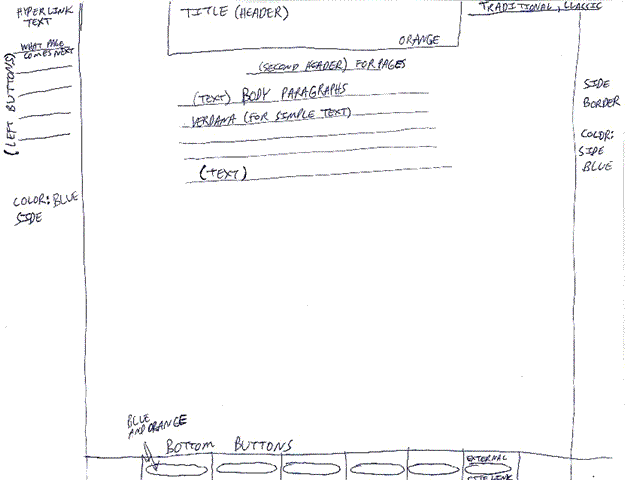 HYPERLINK
TEXT
WHAT PAGE
COMES NEXT
(LEFT BUTTONS)
COLOR: BLUE
SIDE
TITLE (HEADER)
ORANGE
TRADITIONAL, CLASSIC
(SECOND HEADER) FOR PAGES
(TEXT) BODY PARAGRAPHS
VERDANA (FOR SIMPLE TEXT)
(TEXT)
SIDE
BORDER
COLOR:
SIDE
BLUE
BLUE
AND ORANGE
BOTTOM BUTTONS
EXTERNAL
SITE LINK